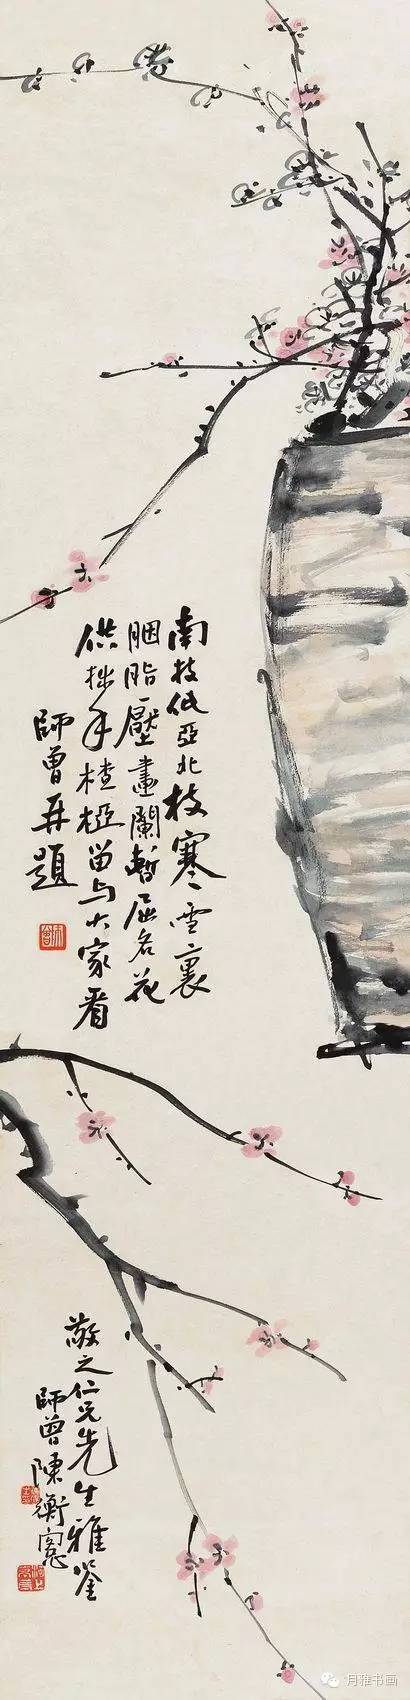 南枝低亞北枝寒雪裏
胭脂壓畫闌暫屈名花
供拙手楂枒留与大家看
師曾再題
敬之仁兄先生雅鉴
師曾陳衡愙
月雅书画